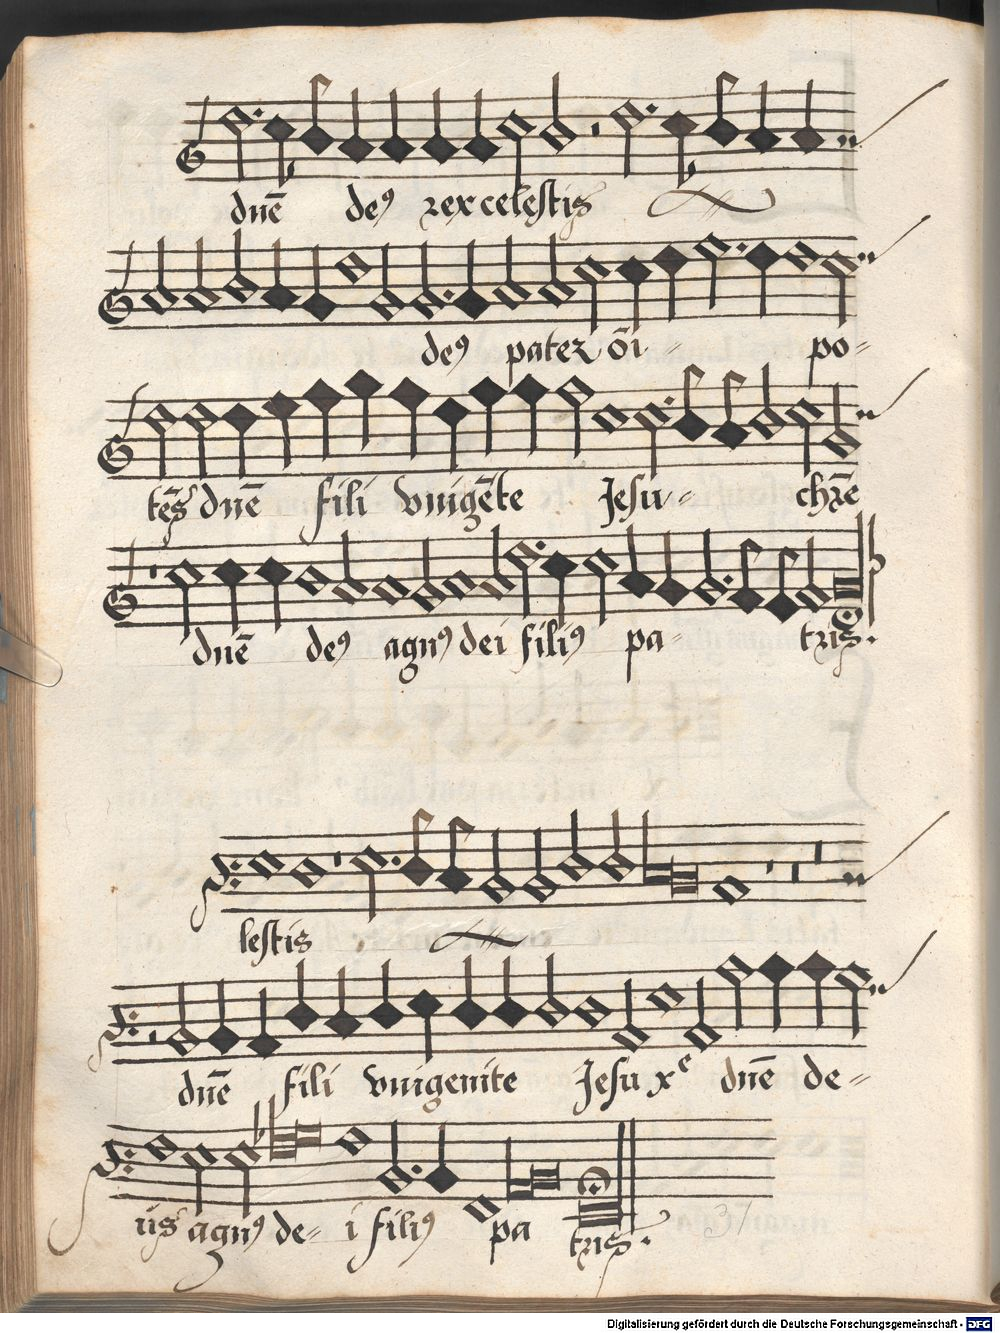 dnē deꝰ rex celestis
deꝰ pater oī - po-
tēs dnē fili vnigēte Jesu - chrē
dnē deꝰ agnꝰ dei filiꝰ pa- tris.
lestis
dnē fili vnigenite Jesu xᵉ dnē de-
us agnꝰ de- i filiꝰ pa tris.
37
Digitalisierung gefördert durch die Deutsche Forschungsgemeinschaft - DFG